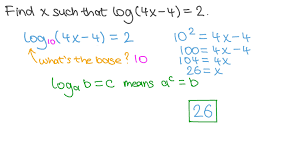 Find x such that log(4x-4) = 2.
log₁₀(4x-4) = 2
what's the base? 10
logₐb = c means aᶜ = b
10² = 4x-4
100 = 4x-4
104 = 4x
26 = x
26